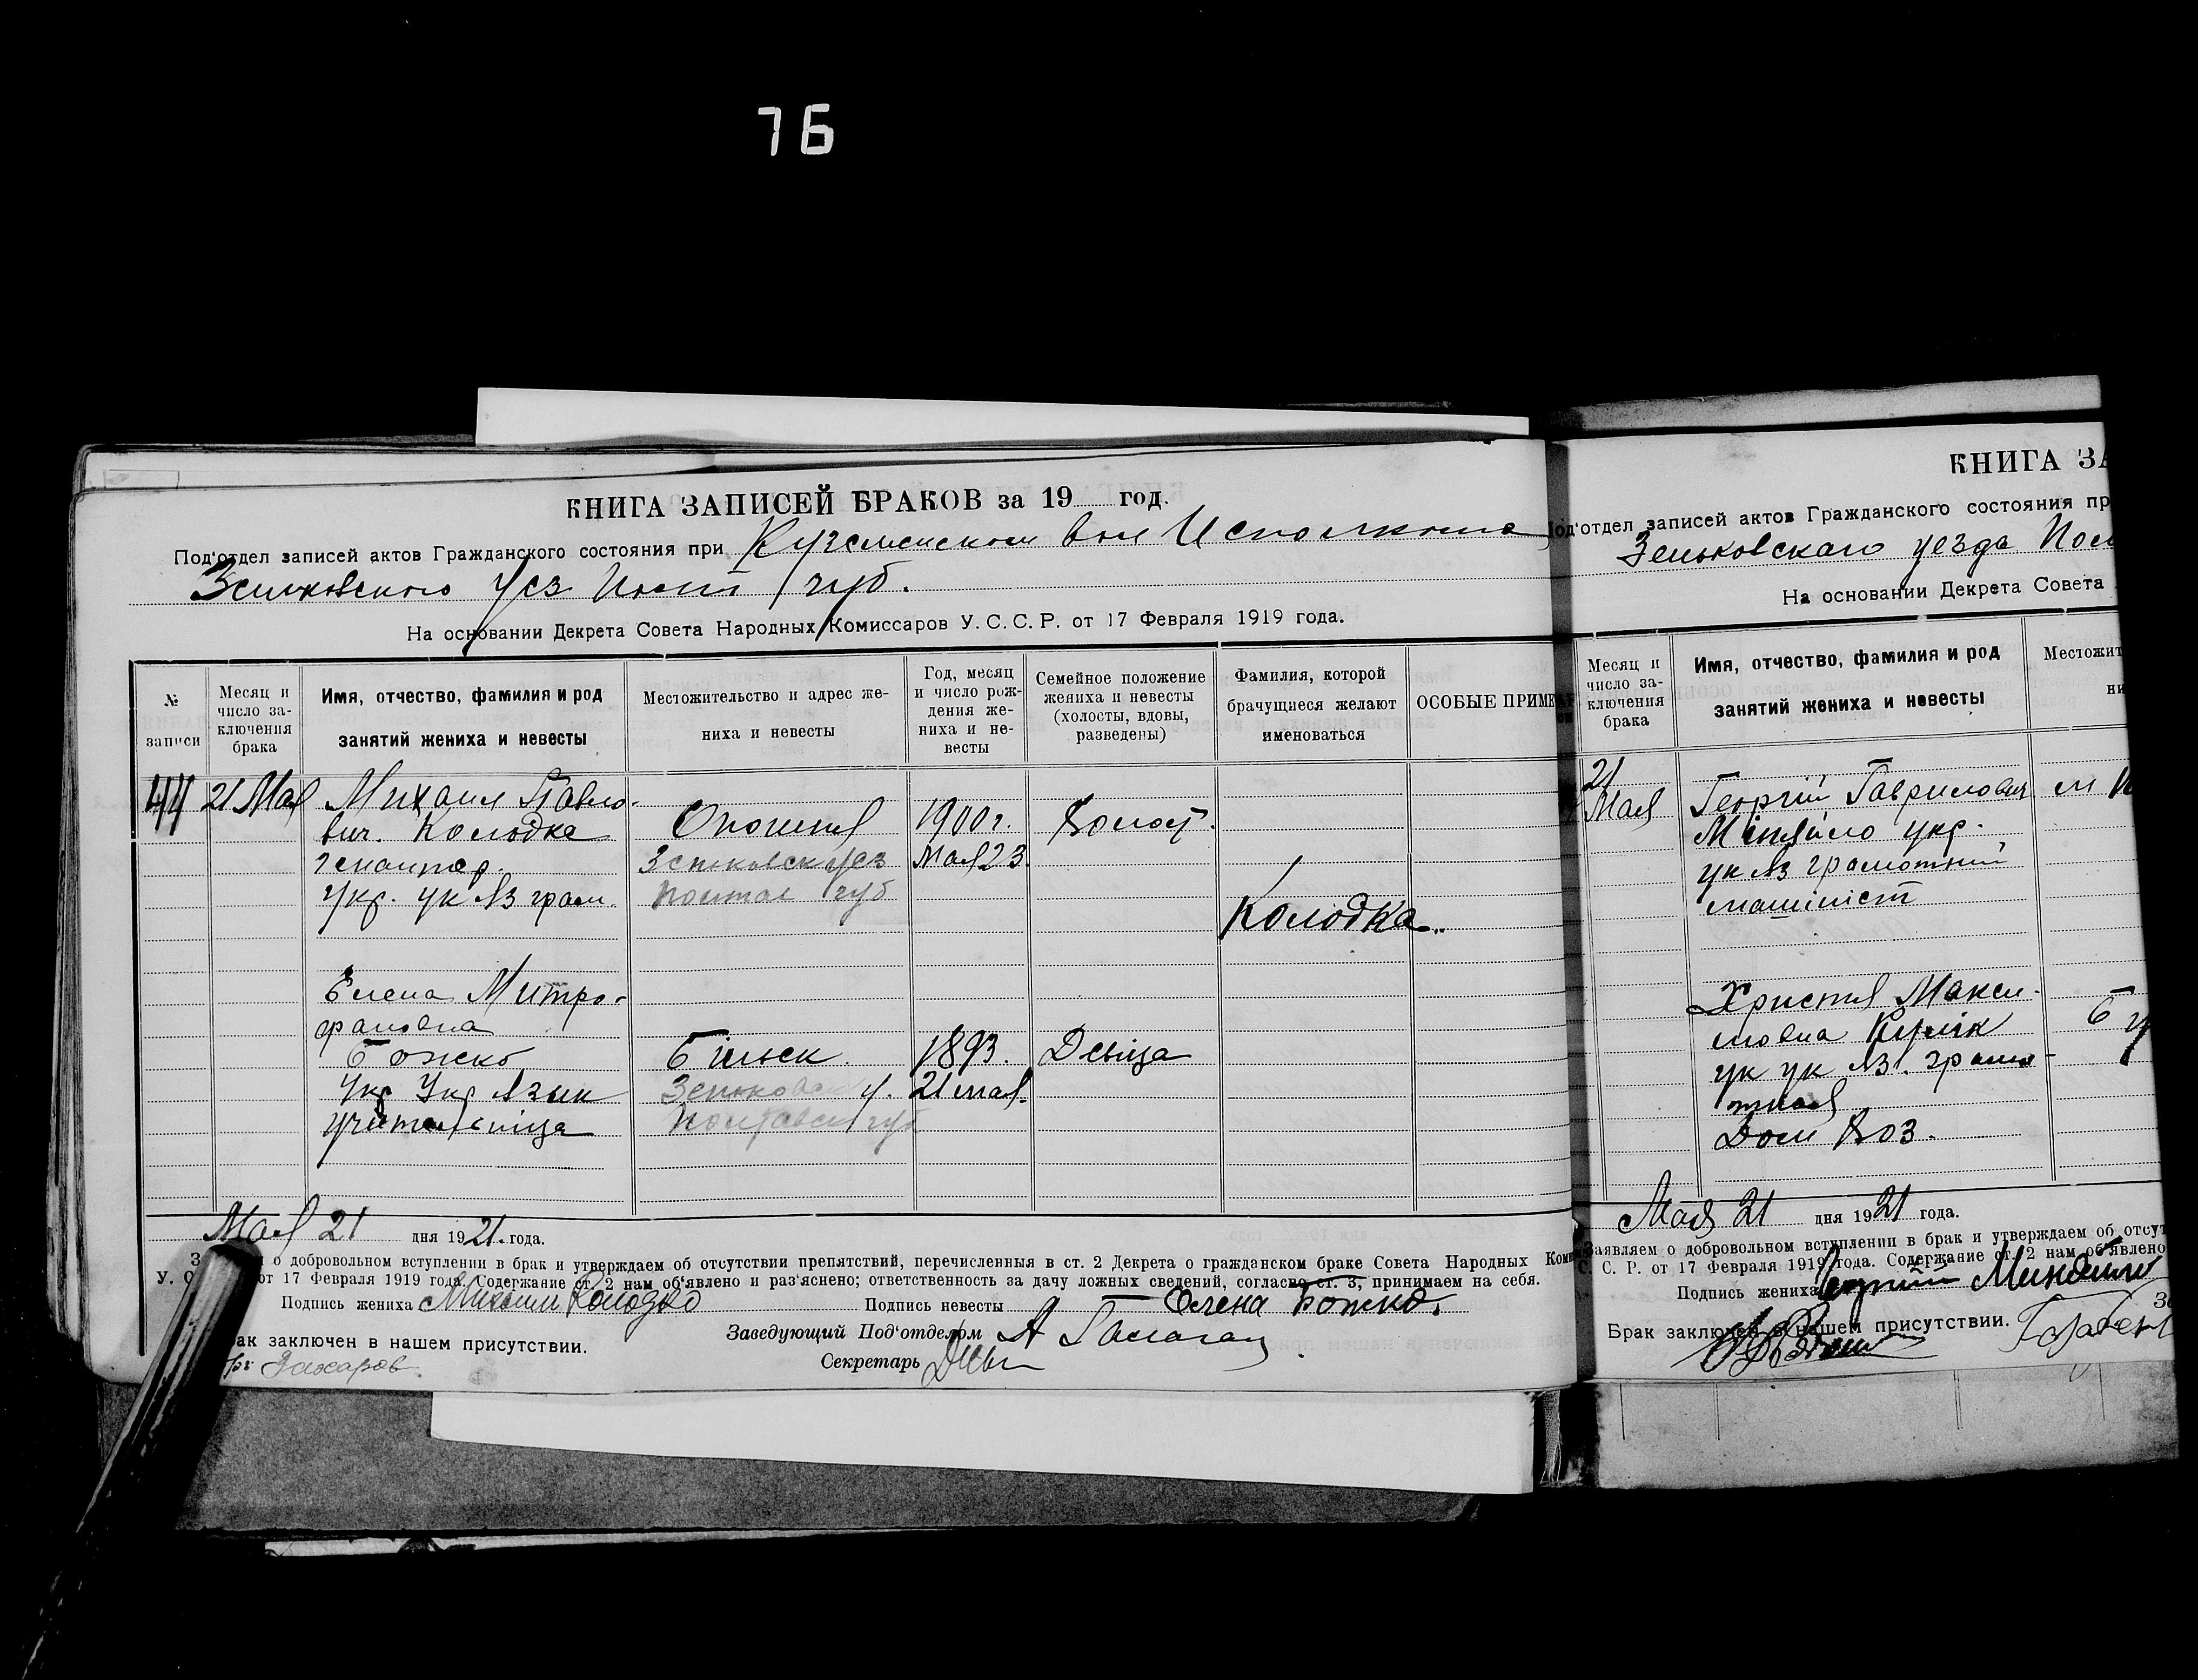 76
КНИГА ЗАПИСЕЙ БРАКОВ за 19 год.
Под'отдел записей актов Гражданского состояния при Куземенском вол Исполкоме
Зеньковского Уез Полт губ.
На основании Декрета Совета Народных Комиссаров У. С. С. Р. от 17 Февраля 1919 года.
№ записи
Месяц и число заключения брака
Имя, отчество, фамилия и род занятий жениха и невесты
Местожительство и адрес жениха и невесты
Год, месяц и число рождения жениха и невесты
Семейное положение жениха и невесты (холосты, вдовы, разведены)
Фамилия, которой брачущиеся желают именоваться
ОСОБЫЕ ПРИМЕ
44 21 Мая Михаил Павло-
вич. Колодка Опошня 1900 г. Холост.
Зеньковск уез Мая 23.
Укр. ук яз грам. Полтав губ
Колодка.
Елена Митро-
фановна
Божко Більск. 1893. Девица
Укр Укр язик Зеньковск у. 21 мая.
учительница Полтавск губ
Мая 21 дня 1921. года.
о добровольном вступлении в брак и утверждаем об отсутствии препятствий, перечисленныя в ст. 2 Декрета о гражданском браке Совета Народных Ком
У. С от 17 Февраля 1919 года. Содержание ст. 2 нам об'явлено и раз'яснено; ответственность за дачу ложных сведений, согласно ст. 3, принимаем на себя.
Подпись жениха Михаил Колодко Подпись невесты Олена Божко.
ак заключен в нашем присутствии. Заведующий Под'отделом А Галаган
Захаров Секретарь
КНИГА ЗА
Под'отдел записей актов Гражданского состояния пр
Зеньковскаго уезда Пол
На основании Декрета Совета
Месяц и число заключения брака
Имя, отчество, фамилия и род занятий жениха и невесты
Местожит
ни
21
Мая Георгій Гаврилович м
Міняйло укр.
ук яз грамотний
машиніст
Христя Макси-
мовна
ук ук яз. грамо-
тная
Дом хоз.
Мая 21 дня 1921 года.
Заявляем о добровольном вступлении в брак и утверждаем об отсут
С. С. Р. от 17 Февраля 1919 года. Содержание ст. 2 нам об'явлено
Подпись жениха Георгий
Брак заключен в нашем присутствии.